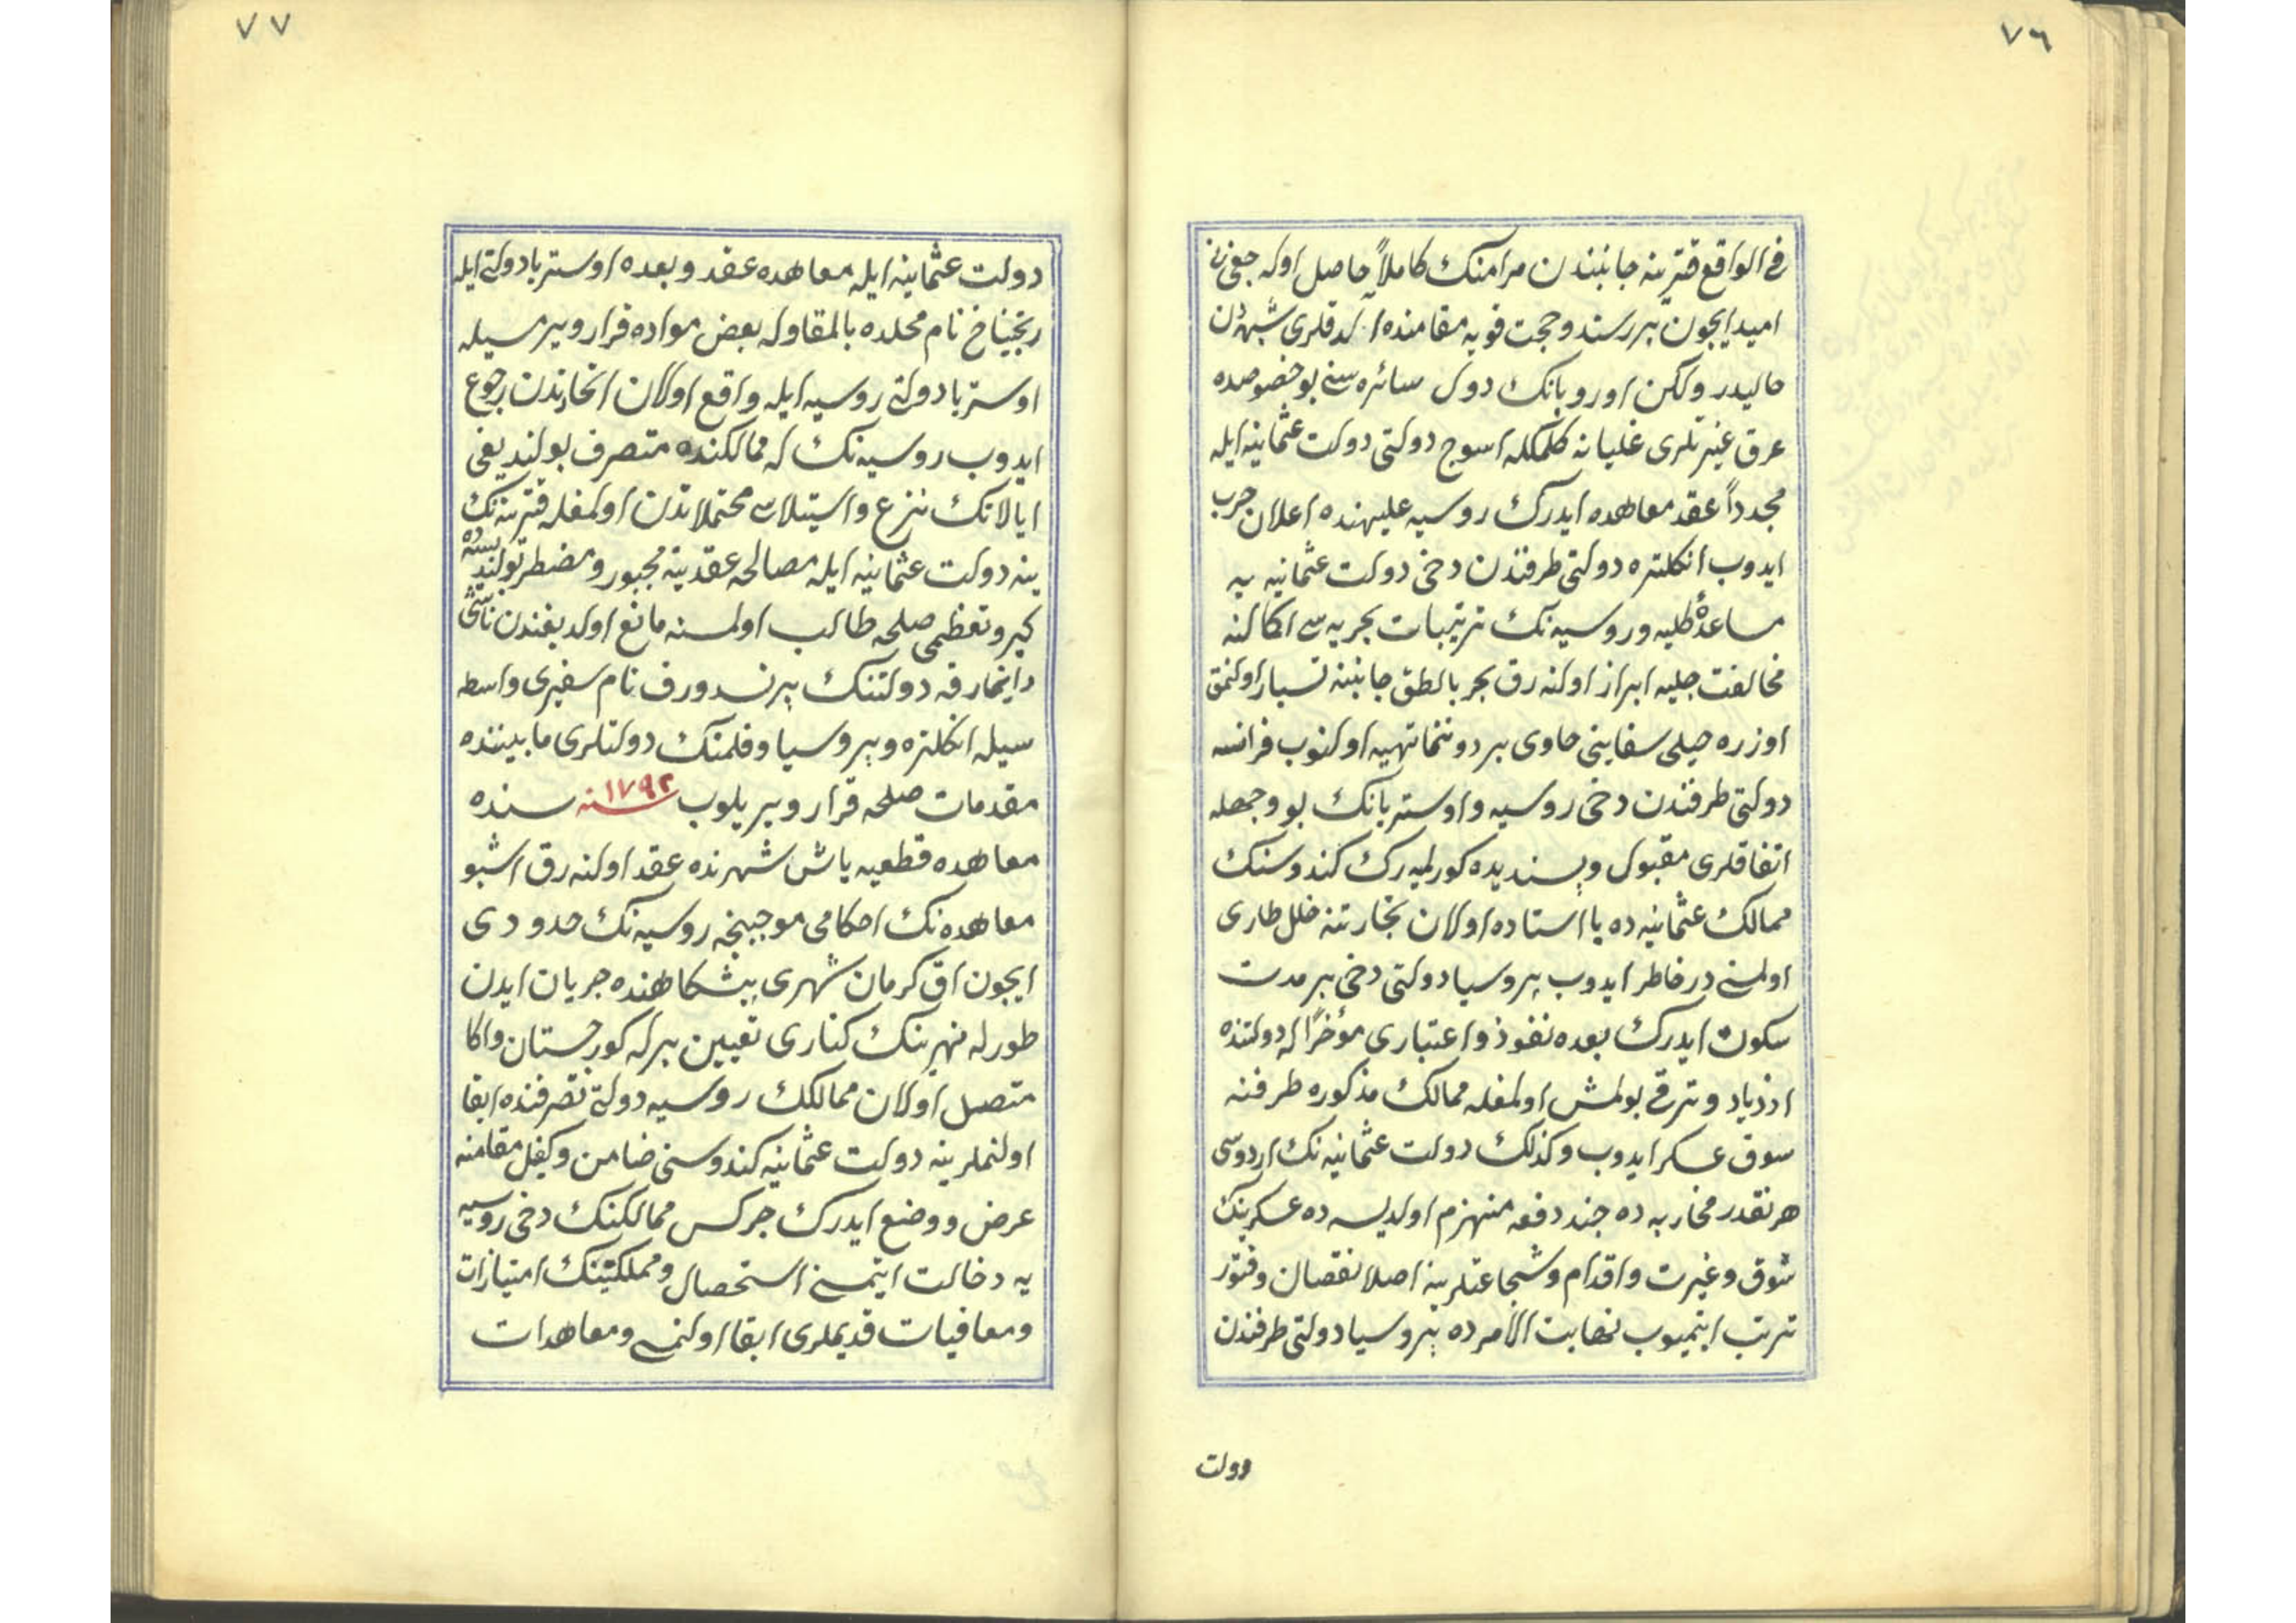 ٧٦
فى الواقع قترينه جانبندن مرامنك كاملاً حاصل اوله جغى نه
اميد ايجون بر سند و حجت قويه مقامنده اولدقلرى شبهه دن
خاليدر ولكن اوروپانك دول سائره سنى بو خصوصده
عرق غيرتلرى غليانه كلمكله اسوج دولتى دولت عثمانيه ايله
مجدداً عقد معاهده ايدرك روسيه عليهنده اعلان حرب
ايدوب انكلتره دولتى طرفندن دخى دولت عثمانيه يه
مساعدۀ كليه و روسيه نك ترتيبات بحريه سى اكمالنه
مخالفت جليه ابراز اولنه رق بحر بالطق جانبنه تسيار اولنمق
اوزره خيلى سفاينى حاوى بر دوننما تهيه اولنوب فرانسه
دولتى طرفندن دخى روسيه و اوستريانك بو وجهله
اتفاقلرى مقبول و پسنديده كورلميه رك كندوسنك
ممالك عثمانيه ده پا استاده اولان تجارتنه خلل طارى
اولمسنى درخاطر ايدوب پروسيا دولتى دخى بر مدت
سكوت ايدرك بعده نفوذ و اعتبارى مؤخراً له دولتنده
ازدياد و ترقى بولمش اولمغله ممالك مذكوره طرفنه
سوق عسكر ايدوب وكذلك دولت عثمانيه نك اردوسى
هر نقدر محاربه ده چند دفعه منهزم اولديسه ده عسكرينك
شوق و غيرت و اقدام و شجاعتلرينه اصلا نقصان و فتور
ترتب ايتميوب نهايت الأمرده پروسيا دولتى طرفندن
دولت
٧٧
دولت عثمانيه ايله معاهده عقد و بعده اوستريا دولتى ايله
ريخيناخ نام محلده بالمقاوله بعض مواده قرار ويرمسيله
اوستريا دولتى روسيه ايله واقع اولان اتحادندن رجوع
ايدوب روسيه نك له ممالكنده متصرف بولنديغى
ايالاتك نزع و استيلاسى محتملاتدن اولمغله قترينه نك
ينه دولت عثمانيه ايله مصالحه عقدينه مجبور و مضطر بولنديسه ده
كبر و تعظمى صلحه طالب اولمسنه مانع اولديغندن ناشى
دانيمارقه دولتنك برنسدورف نام سفيرى واسطه
سيله انكلتره و پروسيا و فلمنك دولتلرى مابيننده
مقدمات صلحه قرار ويريلوب ١٧٩٢ سنه سنده
معاهده قطعيه ياش شهرنده عقد اولنه رق اشبو
معاهده نك احكامى موجبنجه روسيه نك حدودى
ايجون اق كرمان شهرى پيشكاهنده جريان ايدن
طورله نهرينك كنارى تعيين برله كورجستان و اكا
متصل اولان ممالكك روسيه دولتى تصرفنده ابقا
اولنملرينه دولت عثمانيه كندوسنى ضامن و كفيل مقامنه
عرض و وضع ايدرك جركس ممالكنك دخى روسيه
يه دخالت ايتمسنى استحصال و مملكتينك امتيازات
و معافيات قديملرى ابقا اولنمسى و معاهدات